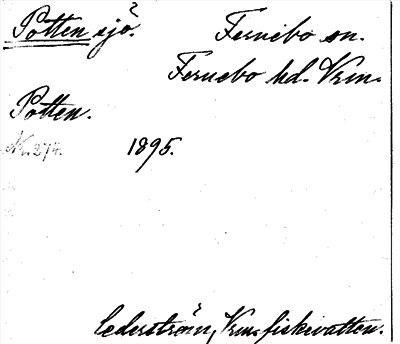 Potten sjö.
Fernebo sn.
Fernebo hd. Vrm.
Potten.
Nr. 274. 1895.
Cederström, Vrm. fiskevatten.